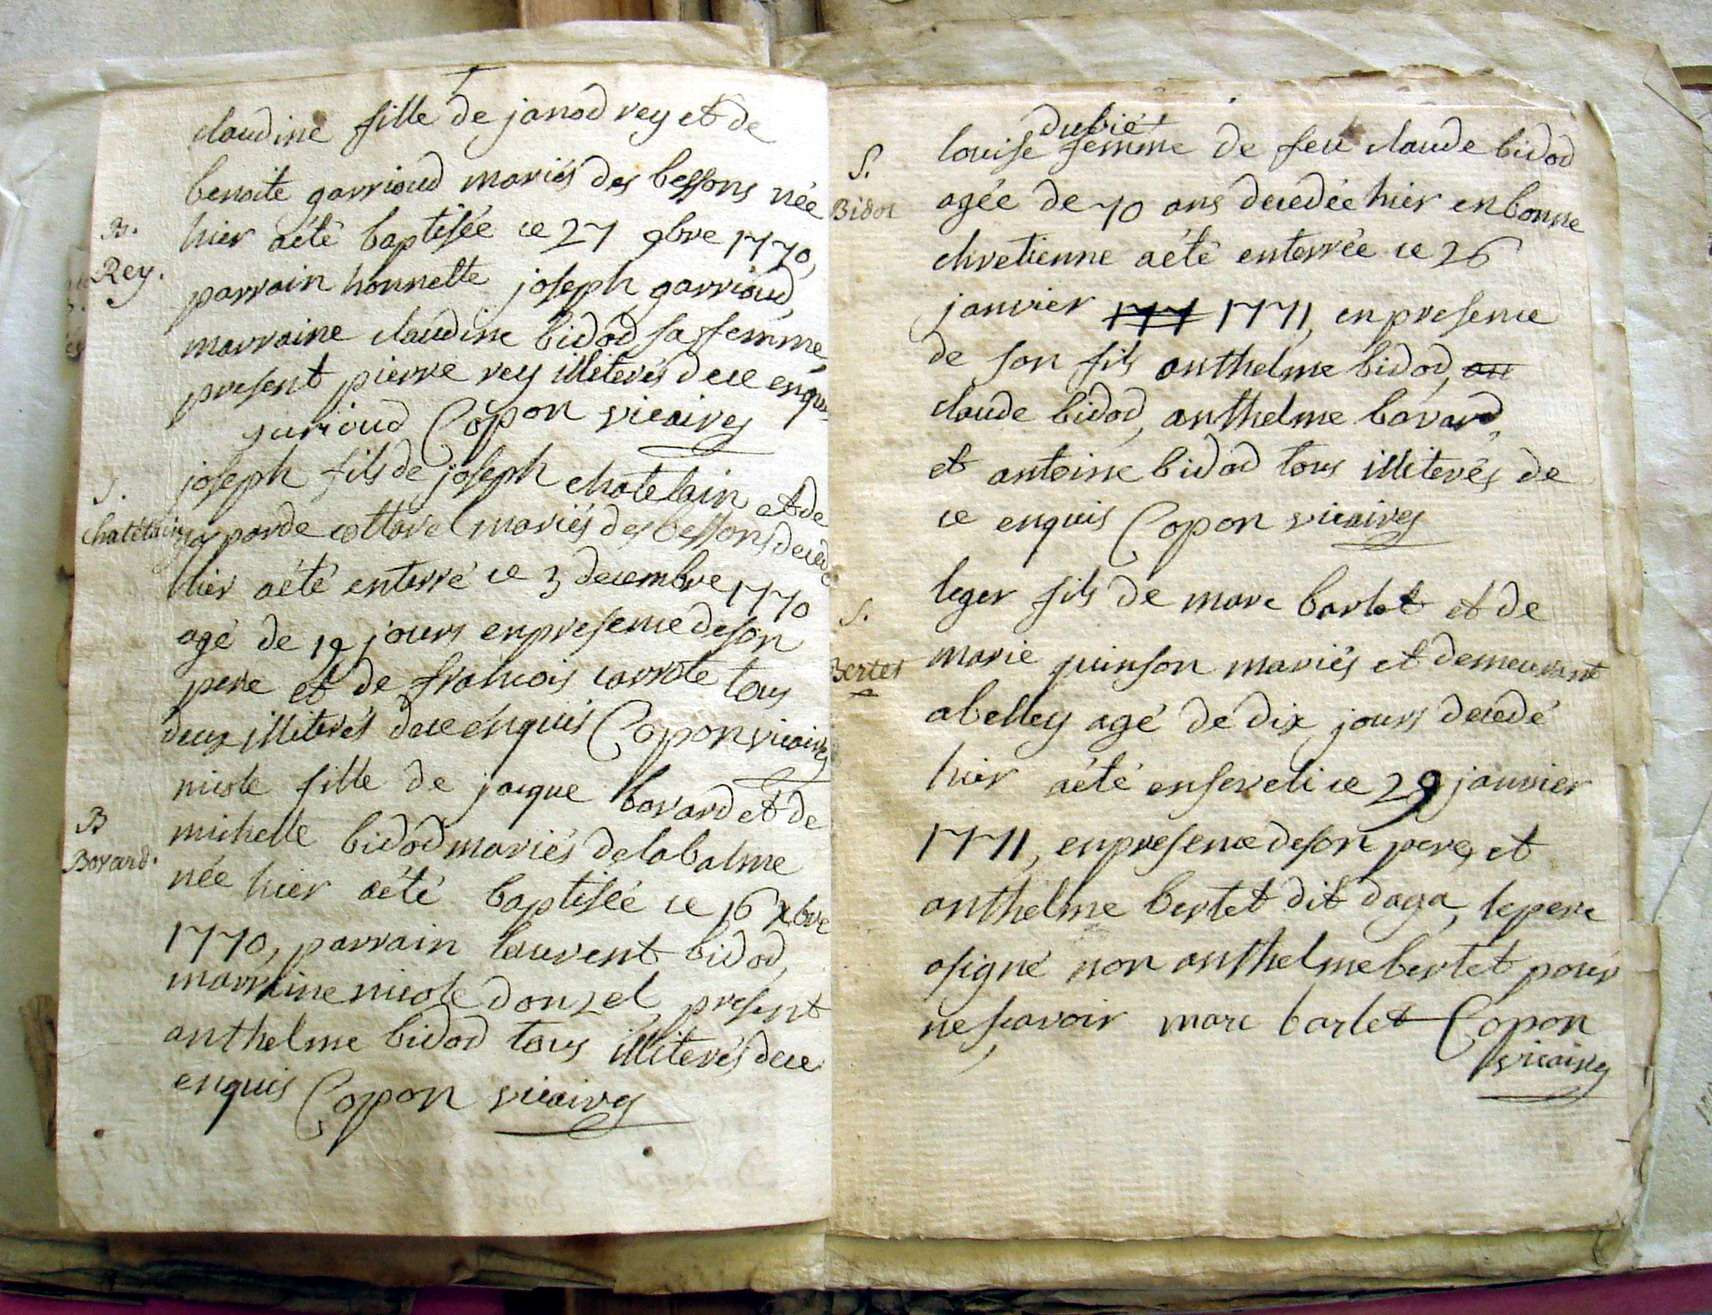 claudine fille de janod rey et de
benoite garrioud mariés des bessons née
B.
Rey.
hier aété baptisée ce 27 9bre 1770,
parrain honnette joseph garrioud,
marraine claudine bidod sa femme,
present pierre rey illiterés de ce enquis
garioud Copon vicaires
S.
Chatelain
joseph fils de joseph chatelain et de
mariés des bessons decedé
hier aété enterré ce 3 decembre 1770
agé de 19 jours enpresence deson
pere et de francois carrote tous
deux illiterés dece enquis Copon vicaires
B
Bovard.
nicole fille de jacque bovard et de
michelle bidod mariés delabalme
née hier aété baptisée ce 16 Xbre
1770, parrain laurent bidod,
marraine nicole donzel, present
anthelme bidod tous illiterés dece
enquis Copon vicaires
S.
Bidot
dubiet
louise femme de feu claude bidod
agée de 70 ans decedée hier enbonne
chretienne aété enterrée ce 26
janvier 177 1771, enpresence
de son fils anthelme bidod, an
claude bidod, anthelme bovard,
et antoine bidod tous illiterés de
ce enquis Copon vicaires
S.
Bertet
leger fils de marc bartet et de
marie juinson mariés et demeurant
abelley agé de dix jours decedé
hier aété enseveli ce 29 janvier
1771, enpresence deson pere, et
anthelme bertet dit daga, lepere
asigné non anthelme bertet pour
nesçavoir marc bartet Copon
vicaires